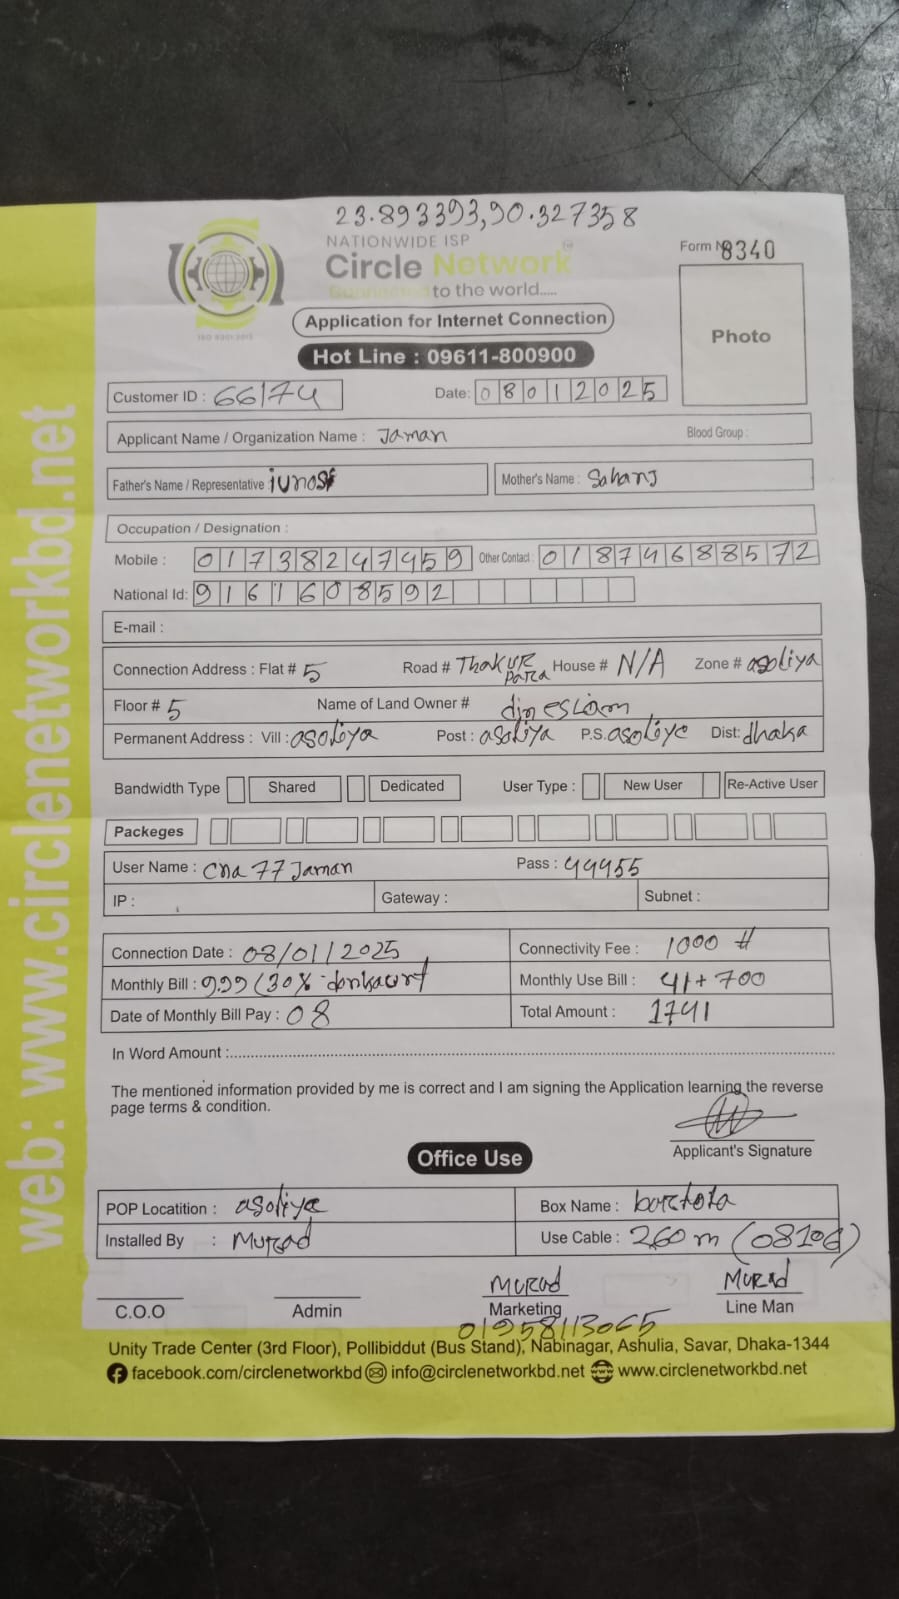 23.893393,90.327358
NATIONWIDE ISP
Circle Network
Connected to the world.....
Form № 8340
Photo
ISO 9001:2015
Application for Internet Connection
Hot Line : 09611-800900
Customer ID : 66174 Date: 08012025
Applicant Name / Organization Name : Jaman Blood Group :
Father's Name / Representative iunos Mother's Name :
Occupation / Designation :
Mobile : 01738247459 Other Contact : 01874688572
National Id: 9161608592
E-mail :
Connection Address : Flat # 5 Road # Thakur para House # N/A Zone # asoliya
Floor # 5 Name of Land Owner #
Permanent Address : Vill: asoliya Post : asoliya P.S. asoliye Dist: dhaka
Bandwidth Type Shared Dedicated User Type : New User Re-Active User
Packeges
User Name : cna 77 Jaman Pass : 44455
IP : Gateway : Subnet :
Connection Date : 08/01/2025 Connectivity Fee : 1000 #
Monthly Bill : 999 (30% Monthly Use Bill : 41+700
Date of Monthly Bill Pay : 08 Total Amount : 1741
In Word Amount :
The mentioned information provided by me is correct and I am signing the Application learning the reverse
page terms & condition.
Applicant's Signature
Office Use
POP Locatition : asoliya Box Name :
Installed By : Murad Use Cable : 260 m
C.O.O Admin Murad Marketing Murad Line Man
01958113065
Unity Trade Center (3rd Floor), Pollibiddut (Bus Stand), Nabinagar, Ashulia, Savar, Dhaka-1344
facebook.com/circlenetworkbd info@circlenetworkbd.net www.circlenetworkbd.net
web: www.circlenetworkbd.net